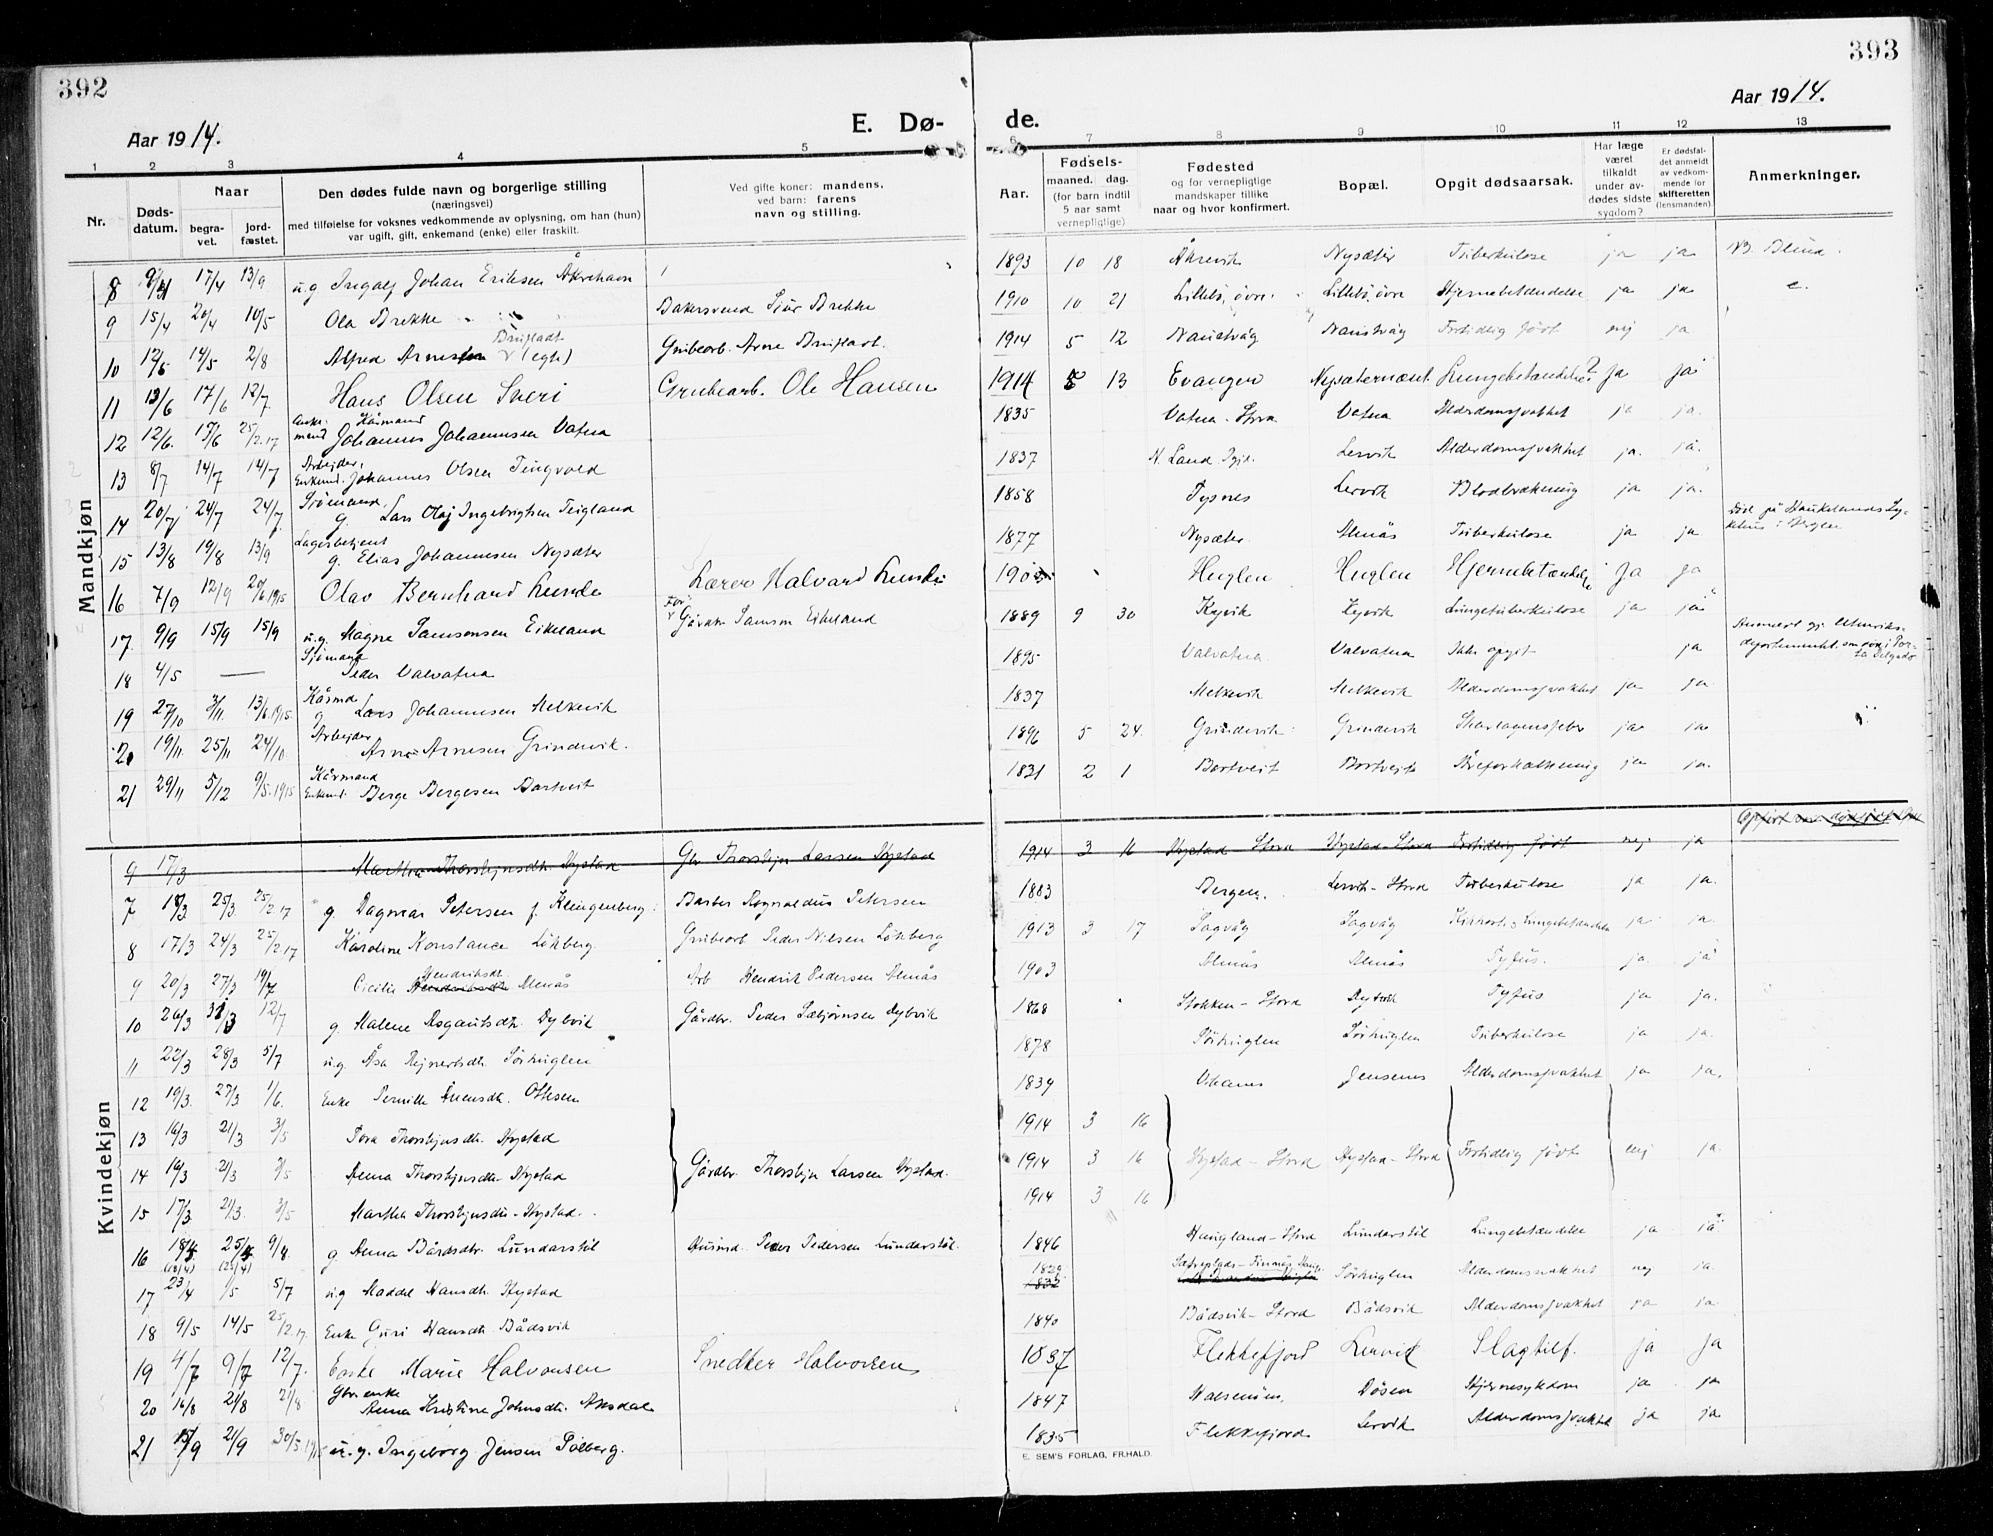 392
393
Aar 1914.
E. Dø-
de.
Aar 1914.
1 2 3 4 5 6 7 8 9 10 11 12 13
Nr.
Døds-
datum.
Naar
begra-
vet.
jord-
fæstet.
Den dødes fulde navn og borgerlige stilling
(næringsvei)
med tilføielse for voksnes vedkommende av oplysning, om han (hun)
var ugift, gift, enkemand (enke) eller fraskilt.
Ved gifte koner: mandens,
ved barn: farens
navn og stilling.
Aar.
Fødsels-
maaned. dag.
(for barn indtil
5 aar samt
vernepligtige)
Fødested
og for vernepligtige
mandskaper tillike
naar og hvor konfirmert.
Bopæl.
Opgit dødsaarsak.
Har læge
været
tilkaldt
under av-
dødes sidste
sygdom?
Er dødsfal-
det anmeldt
av vedkom-
mende for
skifteretten
(lensmanden)
Anmerkninger.
Mandkjøn
8 17/4 13/9 u.g Ingolf Johan Eriksen Åkrehavn 1893 10 18 Åkrevik Nysæter Tuberkulose ja ja Blind.
9 15/4 20/4 10/5 Ola Brekke Bakersvend Sjur Brekke 1910 10 21 Lillebö, övre Lillebö, övre Hjernebetændelse ja ja
10 12/5 14/5 2/8 Alfred Arnesen Brufladt (egte) Grubearb. Arne Brufladt. 1914 5 12 Naustvåg Naustvåg Fortidlig födt nej ja
11 13/6 17/6 12/7 Hans Olsen Sveri Grubearb. Ole Hansen 1914 5 13 Evanger Nysæternæset Lungebetændelse? Ja ja
12 12/6. 19/6 25/2.17 Enke-mand Kårmand Johannes Johannesen Vatna 1835 Vatna - Stord Vatna Alderdomssvakhet ja ja.
13 8/7 14/7 14/7 Arbejder, Enkemd. Johannes Olsen Tingvold 1837 N. Land Pgjd. Lervik Alderdomssvakhet ja. ja.
14 20/7 24/7 24/7 Sjömand g. Lars Olaj Ingebrigtsen Teigland 1858 Tysnes Lervik Blodbrækning ja ja.
15 13/8 19/8 13/9 Lagerbetjent g. Elias Johannesen Nysæter 1877 Nysæter Almås Tuberkulose ja ja Död på Haukelands Sy-
kehus i Bergen
16 7/9 12/9 20/6 1915 Olav Bernhard Lunde Lærer Halvard Lunde Huglen Huglen Hjernebetændelse Ja ja
17 9/9 15/9 15/9 u.g. Magne Samsonsen Eikeland Gårdbr Samson Eikeland 1889 9 30 Kyvik Kyvik Lungetuberkulose ja ja
18 4/5 — Sjömand Peder Valvatna 1895 Valvatna Valvatna Ikke opgit ja
19 27/10 3/11. 13/6.1915. Kårmd g Lars Johannesen Melkevik 1837 Melkevik Melkevik Alderdomssvakhet ja ja.
20 19/11. 25/11 24/10 Arbejder Arne Arnesen Grindevik. 1896 5 24. Grindevik Grindevik Skarlagensfeber ja ja
21 29/11 5/12 9/5.1915 Kårmand Enkemd. Berge Bergesen Bortveit 1831 2 1 Bortveit Bortveit Åreforkalkning ja ja.
Kvindekjøn
9 17/3 Martha Thorsbjnsdtr. Hystad Gbr Thorsbjn Larsen Hystad 1914 3 16 Hystad Stord Hystad - Stord Fortidlig födt nej ja
7 18/3 25/3. 25/2.17 g. Dagmar Petersen f. Klingenberg Barber Rognaldus Petersen 1883 Bergen. Lervik - Stord Tuberkulose ja ja.
8 17/3 24/3 25/2.17 Karoline Konstance Lökberg. Grubearb Peder Nilsen Lökberg 1913 3 17 Sagvåg Sagvåg Kikhoste & Lungebetændelse ja ja.
9 20/3 27/3 19/7 Cicilie Hendriksdt. Almås Arb Hendrik Pedersen Almås 1903 Almås Almås Tyfus. ja. ja
10 26/3 31/3 12/7 g Malene Asgautsdtr. Dybvik Gårdbr. Peder Sæbjörnsen Dybvik 1868 Stokken - Stord Dybvik Tyfus ja ja.
11 22/3 28/3 5/7 u.g. Åsa Rejnertsdtr. Sörhuglen 1878 Sörhuglen Sörhuglen Tuberkulose ja ja.
12 19/3. 27/3 1/6. Enke Pernille Ånensdtr. Ottesen 1839 Jensenes Alderdomssvakhet ja ja.
13 16/3 21/3 3/5 Tora Thorsbjnsdtr. Hystad 1914 3 16
14 16/3 21/3 3/5 Anna Thorsbjnsdtr. Hystad Gårdbr. Thorsbjn Larsen Hystad. 1914 3 16 Hystad - Stord Hystad - Stord Fortidlig födt nej ja.
15 17/3 21/3. 3/5 Martha Thorsbjnsdtr - Hystad. 1914 3 16
16 18/4 25/4 9/8. g. Anna Bårdsdtr. Lundarstöl Husmd. Peder Pedersen Lundarstöl. 1846 Haugland - Stord Lunderstöl Lungebetændelse ja ja
(18/4) (25/4)
17 23/4 1/5 5/7 u.g Maddel Hansdt. Hystad 1829 Sörhuglen Alderdomssvakhet nej ja.
18 9/5 14/5 25/2.17. Enke Guri Hansdtr Bådsvik 1840 Bådsvik - Stord Bådsvik Alderdomssvakhet ja ja.
19 4/7 9/7 12/7. Enke Marie Halvorsen Snedker Halvorsen 1837 Flekkefjord Lervik Slagtilf. ja Ja
20 16/8 21/8 21/8 Gbr. enke Anna Kristine Johnsdtr. Aksdal 1847 Dösen Hjernesykdom ja ja
21 15/9 21/9 30/5.1915 u.g. Ingeborg Jensen Solberg. 1835 Flekkefjord Lervik Alderdomssvakhet ja ja
E. SEM'S FORLAG, FR.HALD.